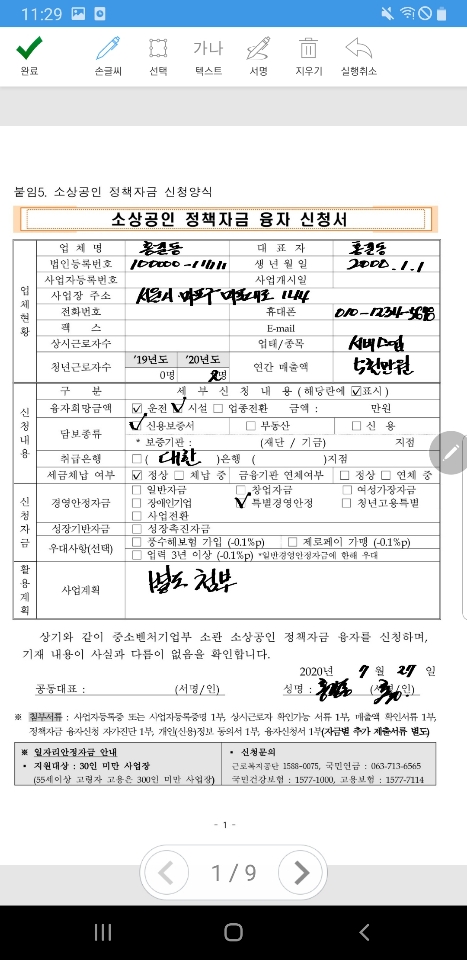 11:29
완료 손글씨 선택 가나 텍스트 서명 지우기 실행취소
붙임5. 소상공인 정책자금 신청양식
소상공인 정책자금 융자 신청서
업체현황
업 체 명 홍길동 대 표 자 홍길동
법인등록번호 100000-11111 생 년 월 일 2000.1.1
사업자등록번호 사업개시일
사업장 주소 서울시 마포구 마포대로 144
전화번호 휴대폰 010-1234-5698
팩 스 E-mail
상시근로자수 업태/종목 서비스업
청년근로자수 '19년도 '20년도 연간 매출액 5천만원
0명 2명
신청내용
구 분 세 부 신 청 내 용 (해당란에 ☑표시)
융자희망금액 ☑ 운전 ☑ 시설 □ 업종전환 금액 : 만원
담보종류 ☑ 신용보증서 □ 부동산 □ 신 용
* 보증기관 : (재단 / 기금) 지점
취급은행 □ ( 대한 )은행 ( )지점
세금체납 여부 ☑ 정상 □ 체납 중 금융기관 연체여부 □ 정상 □ 연체 중
신청자금
경영안정자금 □ 일반자금 □ 창업자금 □ 여성가장자금
□ 장애인기업 ☑ 특별경영안정 □ 청년고용특별
□ 사업전환
성장기반자금 □ 성장촉진자금
우대사항(선택) □ 풍수해보험 가입 (-0.1%p) □ 제로페이 가맹 (-0.1%p)
□ 업력 3년 이상 (-0.1%p) *일반경영안정자금에 한해 우대
활용계획
사업계획 별도 첨부
상기와 같이 중소벤처기업부 소관 소상공인 정책자금 융자를 신청하며,
기재 내용이 사실과 다름이 없음을 확인합니다.
2020년 7 월 27 일
공동대표 : (서명/인) 성명 : 홍길동 (서명/인)
※ 첨부서류 : 사업자등록증 또는 사업자등록증명 1부, 상시근로자 확인가능 서류 1부, 매출액 확인서류 1부,
정책자금 융자신청 자가진단 1부, 개인(신용)정보 동의서 1부, 융자신청서 1부(자금별 추가 제출서류 별도)
※ 일자리안정자금 안내 • 신청문의
• 지원대상 : 30인 미만 사업장 근로복지공단 1588-0075, 국민연금 : 063-713-6565
(55세이상 고령자 고용은 300인 미만 사업장) 국민건강보험 : 1577-1000, 고용보험 : 1577-7114
- 1 -
1 / 9